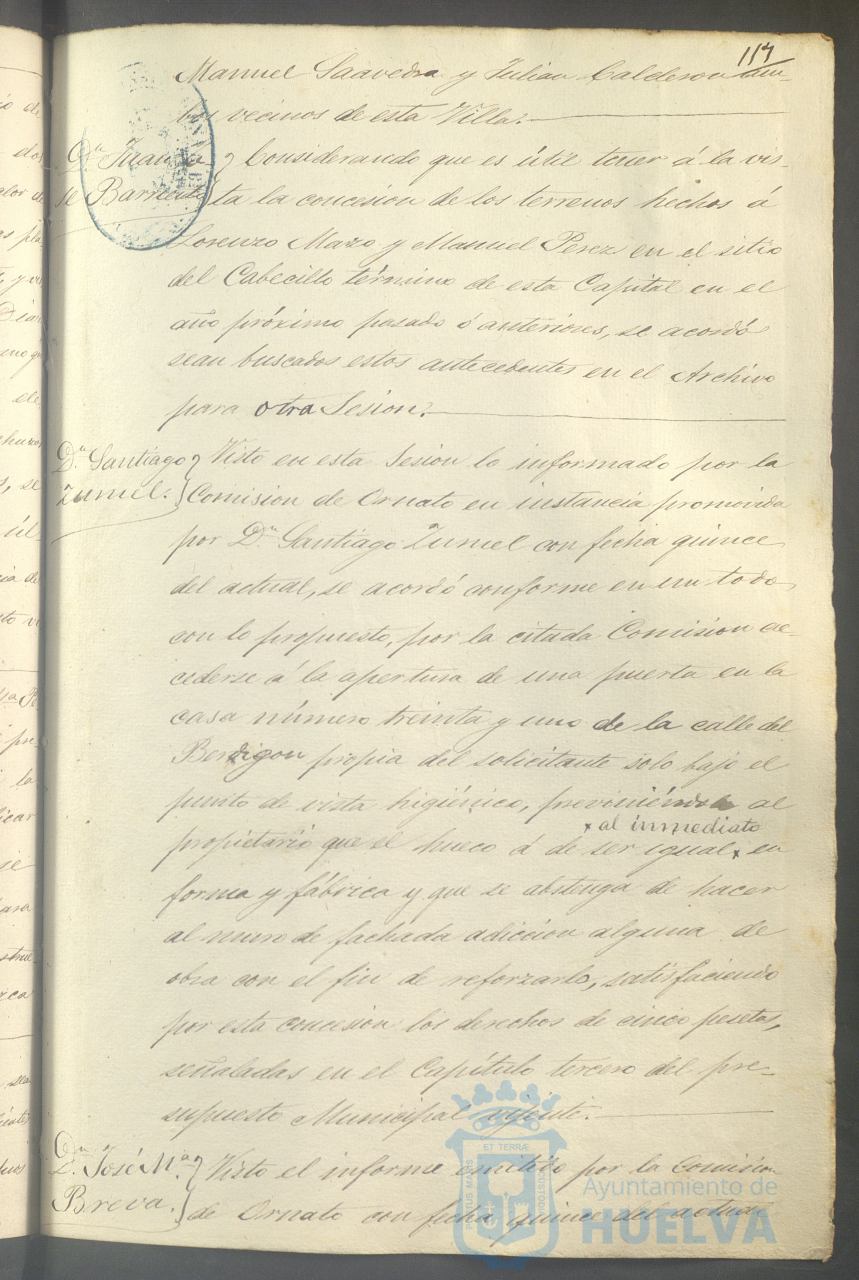 117
Manuel Saavedra y Julian Calderon am-
bos vecinos de esta Villa.
Dn. Juan
de Barr
Considerando que es útil tener á la vis-
ta la concesion de los terrenos hechos á
Lorenzo Mazo y Manuel Perez en el sitio
del Cabecillo término de esta Capital en el
año próximo pasado ó anteriores, se acordó
sean buscados estos antecedentes en el Archivo
para otra Sesion.
Dn. Santiago
Zumel.
Visto en esta Sesion lo informado por la
Comision de Ornato en instancia promovida
por Dn. Santiago Zumel con fecha quince
del actual, se acordó conforme en un todo
con lo propuesto, por la citada Comision ac-
cederse á la apertura de una puerta en la
casa número treinta y uno de la calle del
Berdigon propia del solicitante solo bajo el
punto de vista higiénico, previniéndole al
x al inmediato
propietario que el hueco á de ser igual x en
forma y fábrica y que se abstenga de hacer
al muro de fachada adiccion alguna de
obra con el fin de reforzarlo, satisfaciendo
por esta concesion los derechos de cinco pesetas,
señaladas en el Capítulo tercero del pre-
supuesto Municipal vijente.
Dn. José Ma.
Breva.
Visto el informe emitido por la Comision
de Ornato con fecha quince del actual
ET TERRÆ
CUSTODIA
Ayuntamiento de
HUELVA